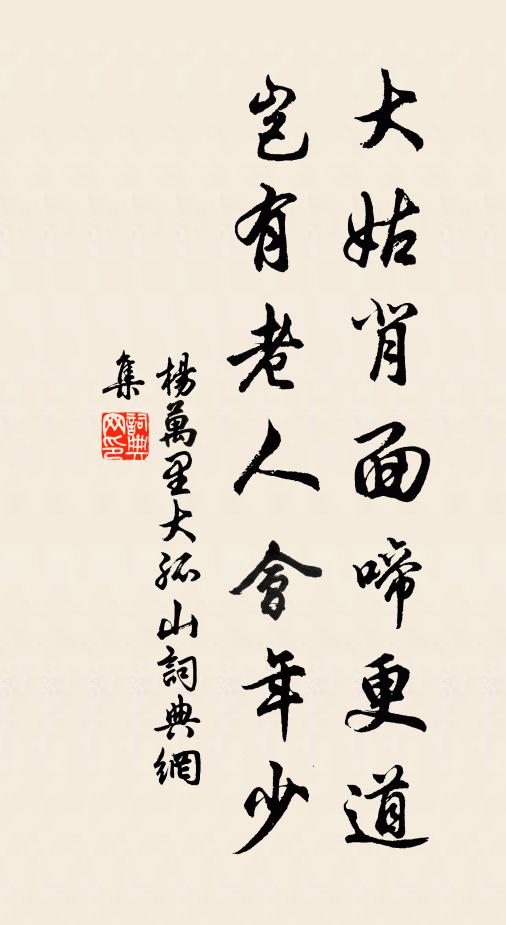 大姑背面啼更道
豈有老人會年少
楊萬里大孤山詞典網
集
詞典
网印